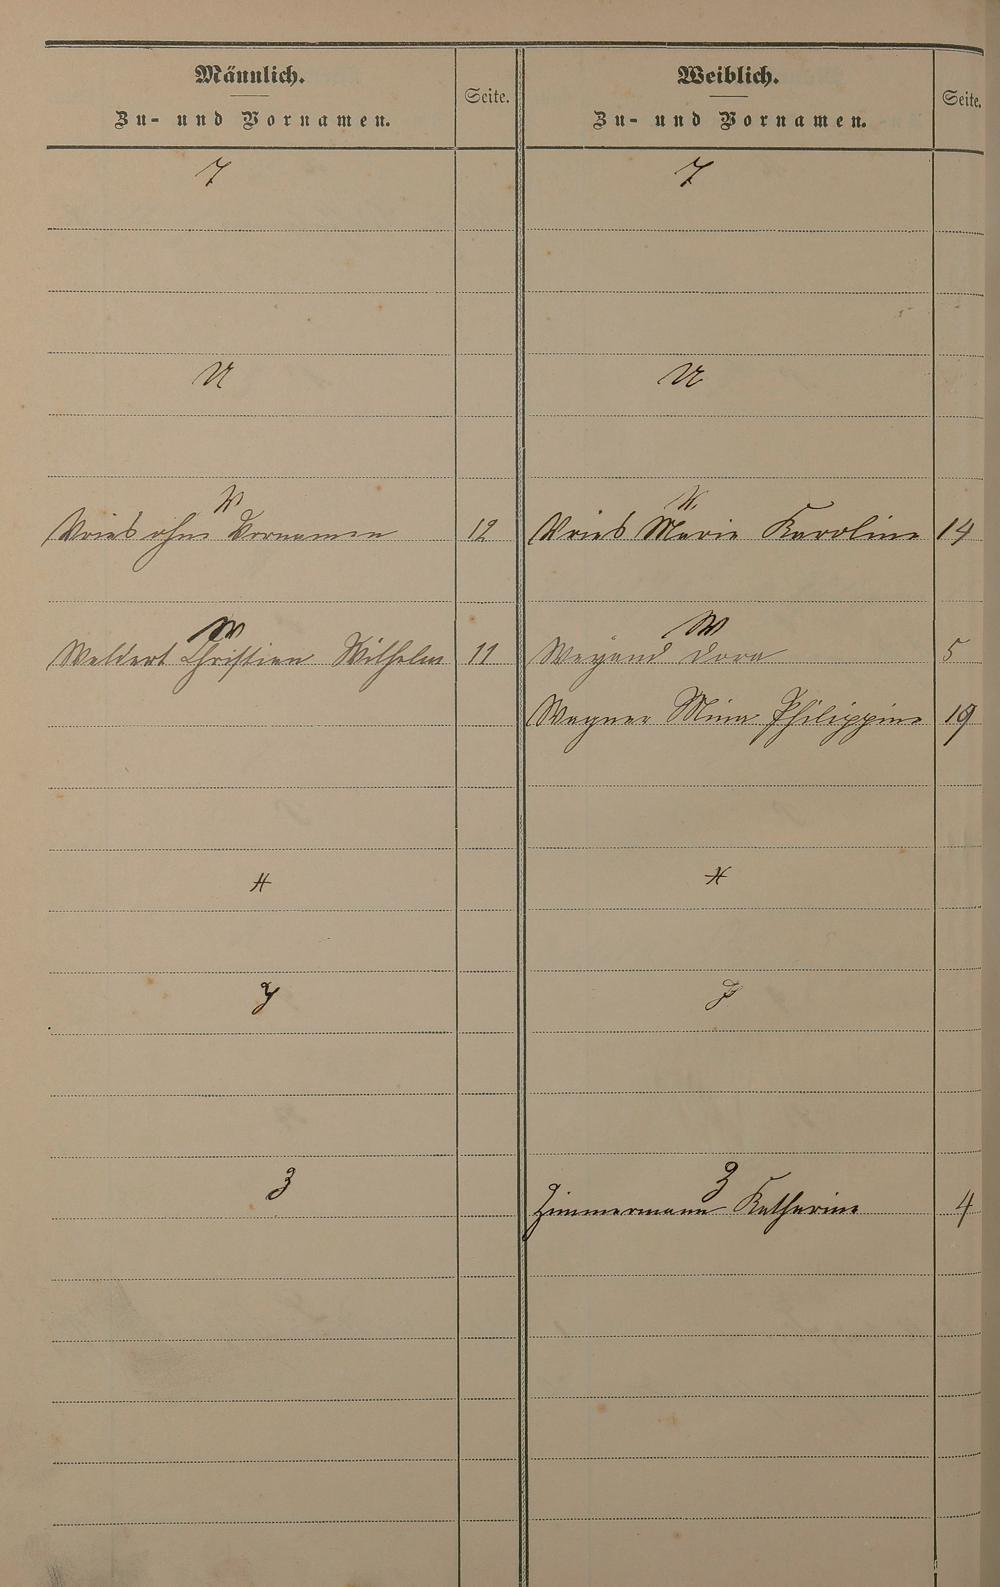 Männlich.
Zu- und Vornamen.
Seite.
Weiblich.
Zu- und Vornamen.
Seite.
T
T
U
U
V
V
Vries ohne Vornamen 12
Vries Marie Karoline 14
W
W
Weldert Christian Wilhelm 11
Weyand Dora 5
Wagner Mina Philippine 19
X
X
Y
Y
Z
Z
Zimmermann Katharine 4